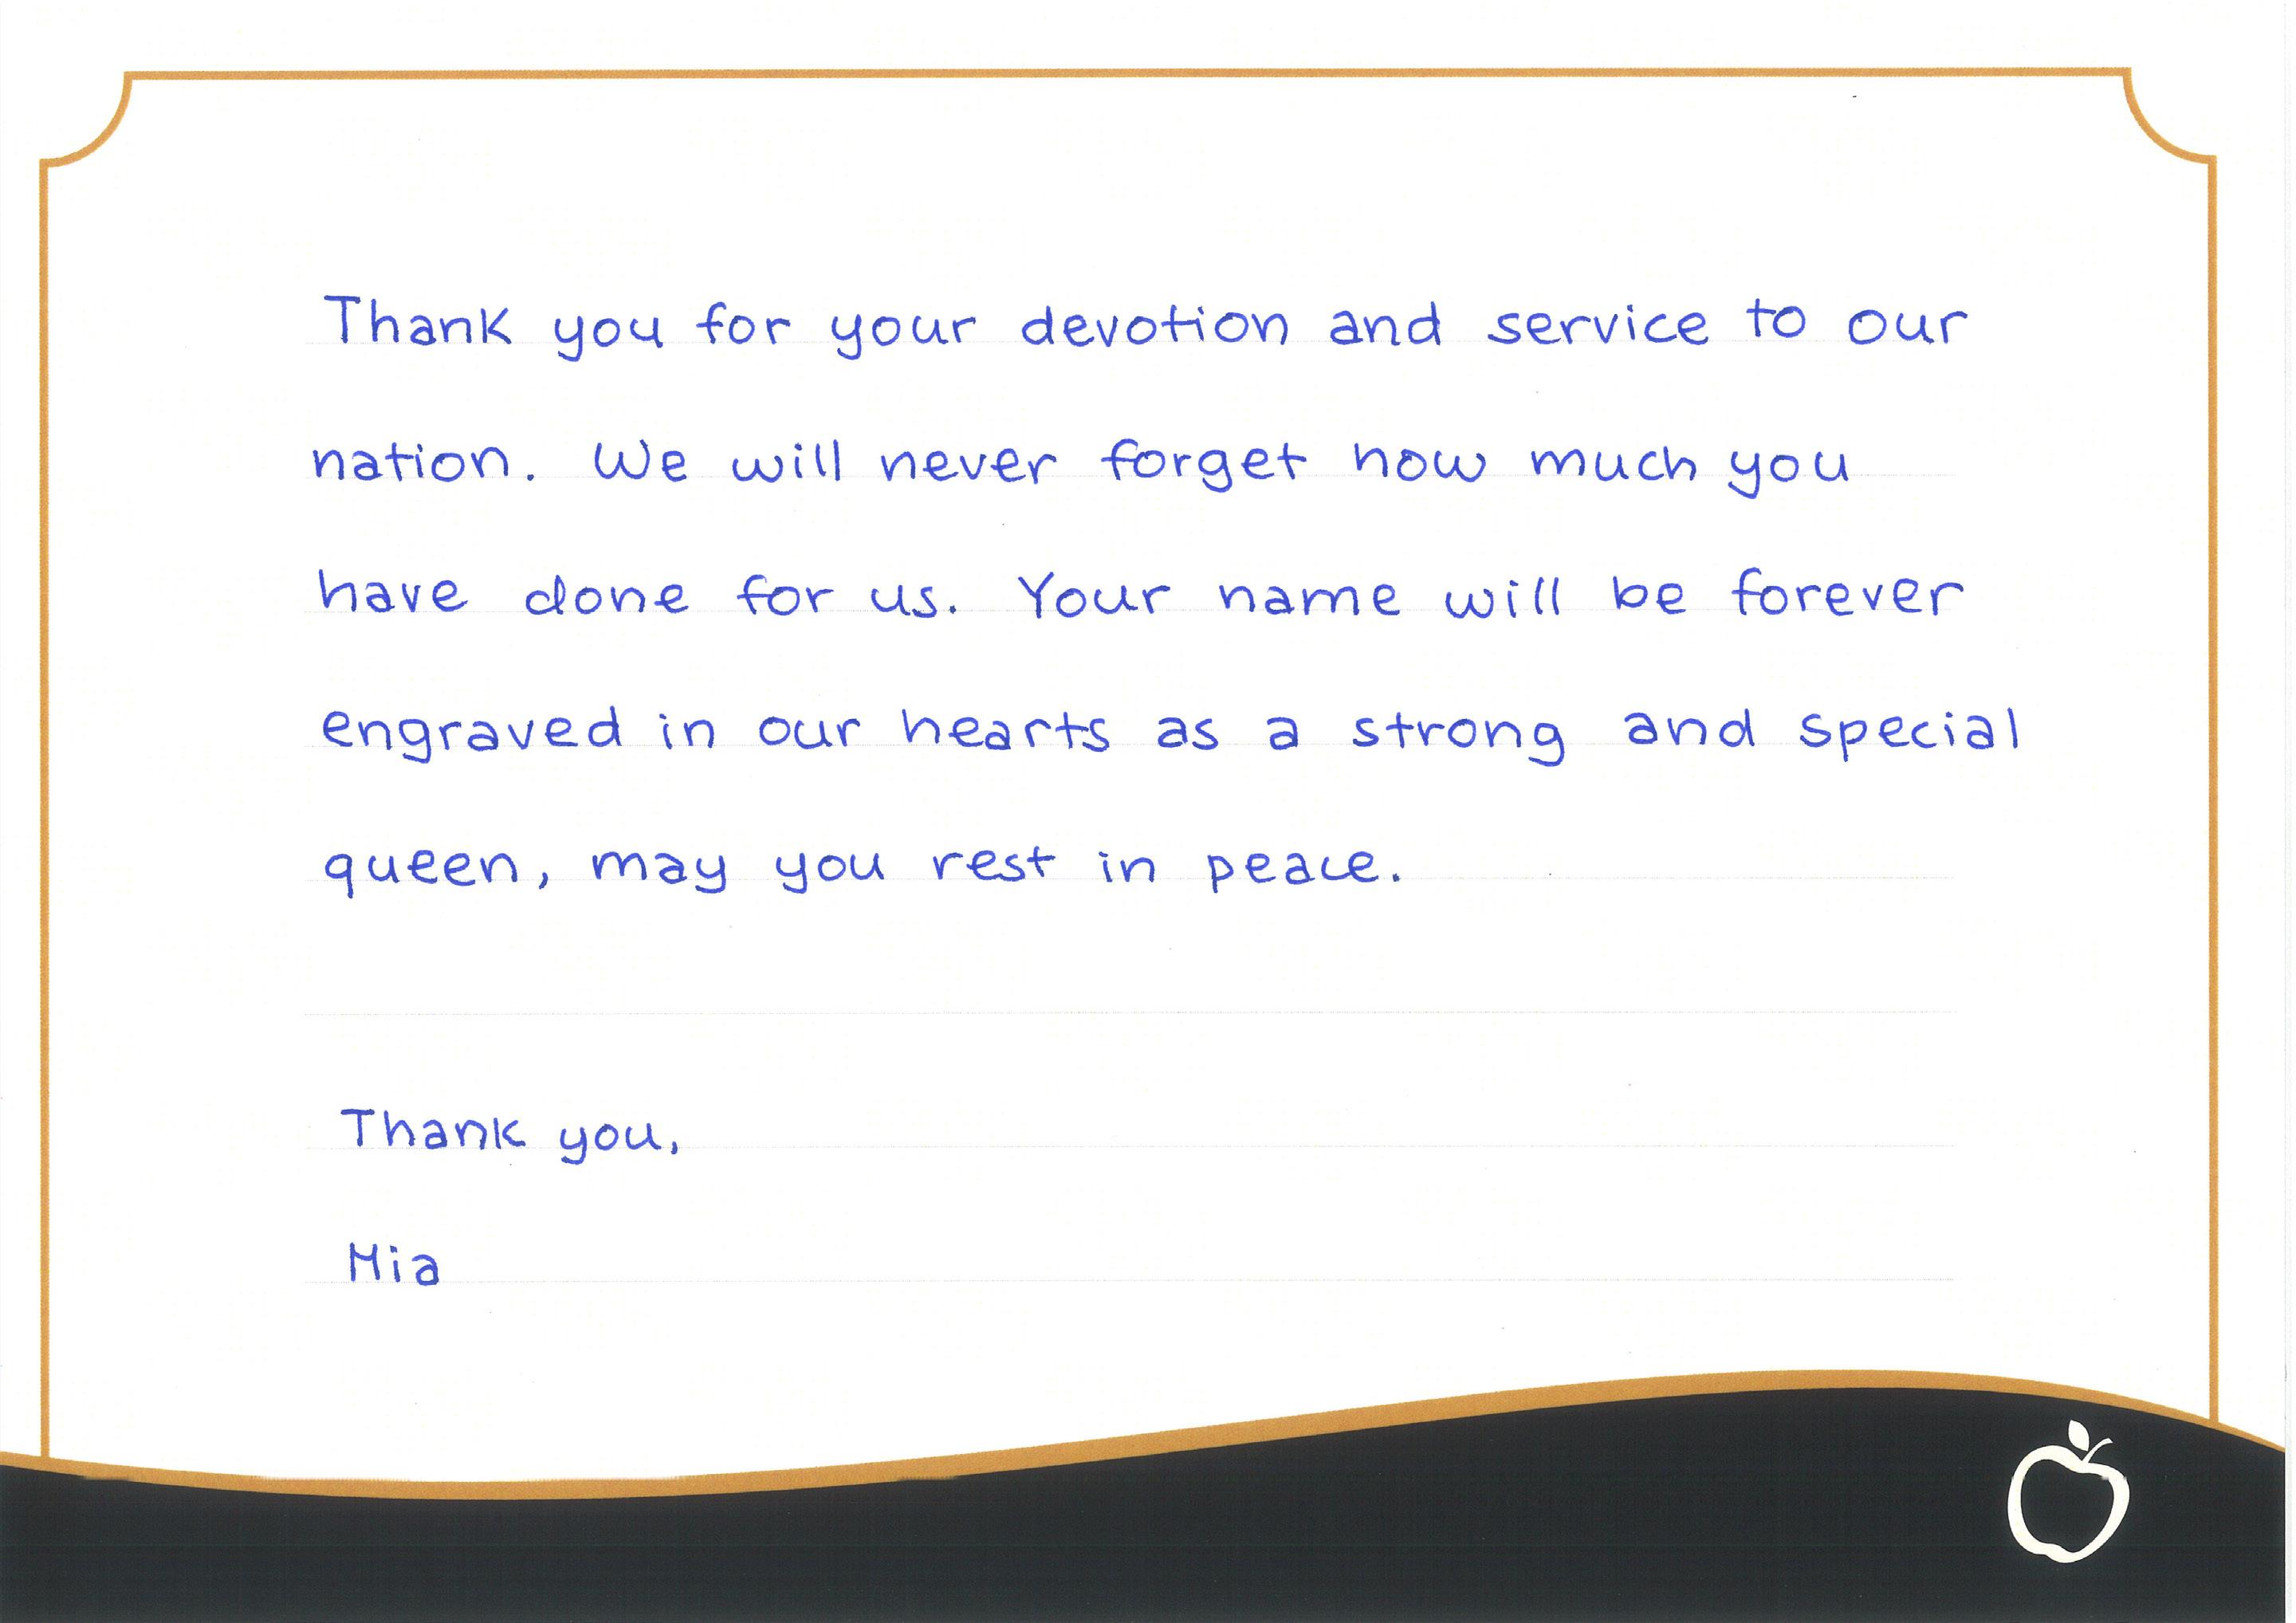 Thank you for your devotion and service to our
nation. We will never forget how much you
have done for us. Your name will be forever
engraved in our hearts as a strong and special
queen, may you rest in peace.
Thank you,
Mia